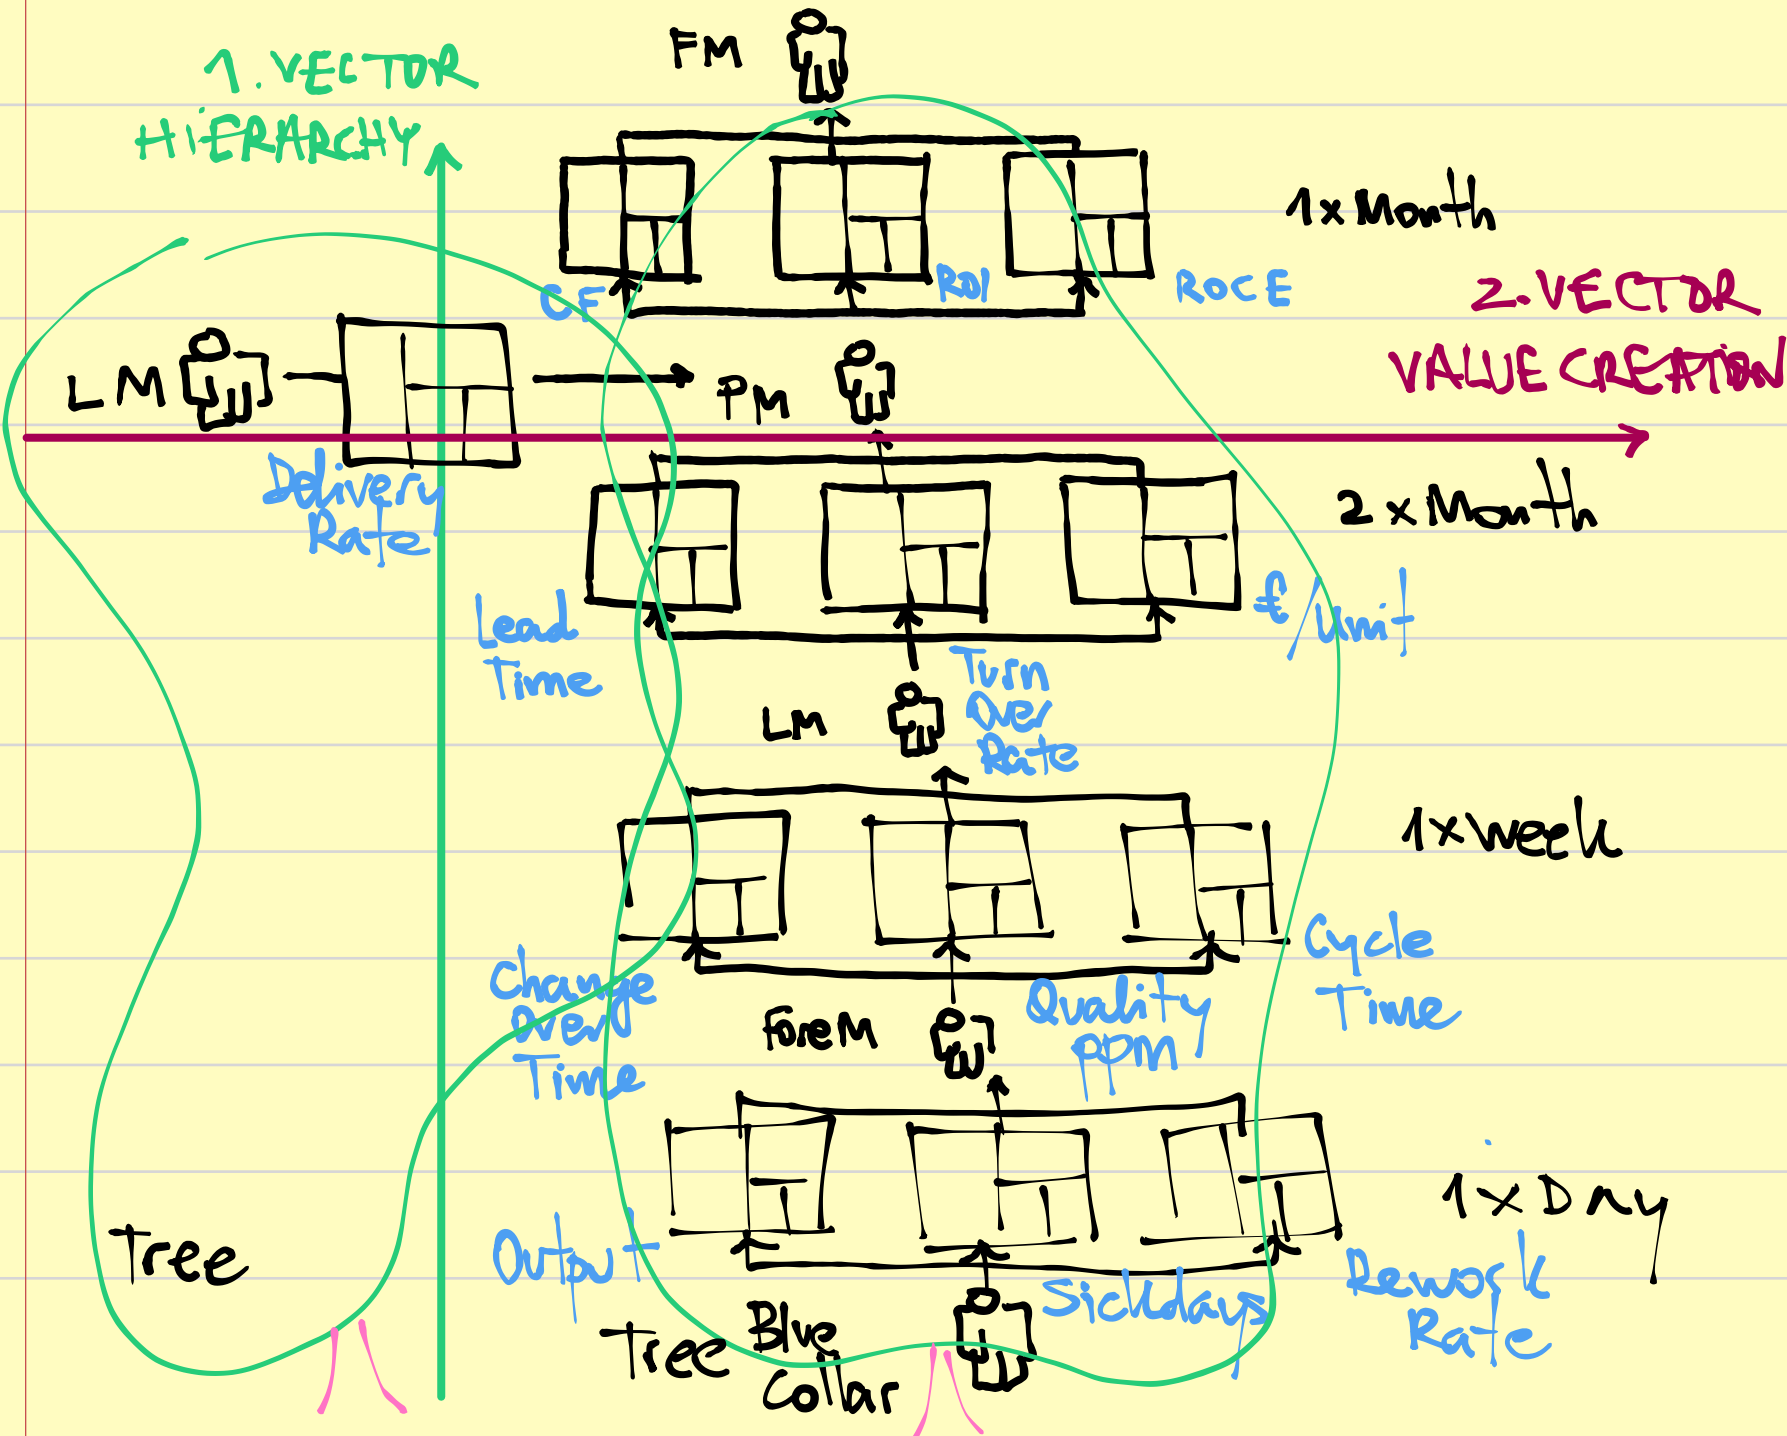 FM
1. VECTOR
HIERARCHY
1x Month
CF
ROI
ROCE
2. VECTOR
VALUE CREATION
LM
PM
Delivery
Rate
2x Month
Lead
Time
€/Unit
Turn
Over
Rate
LM
1x Week
Change
Over
Time
Quality
ppm
Cycle
Time
ForeM
1x Day
Tree
Output
Sickdays
Rework
Rate
Tree
Blue
Collar